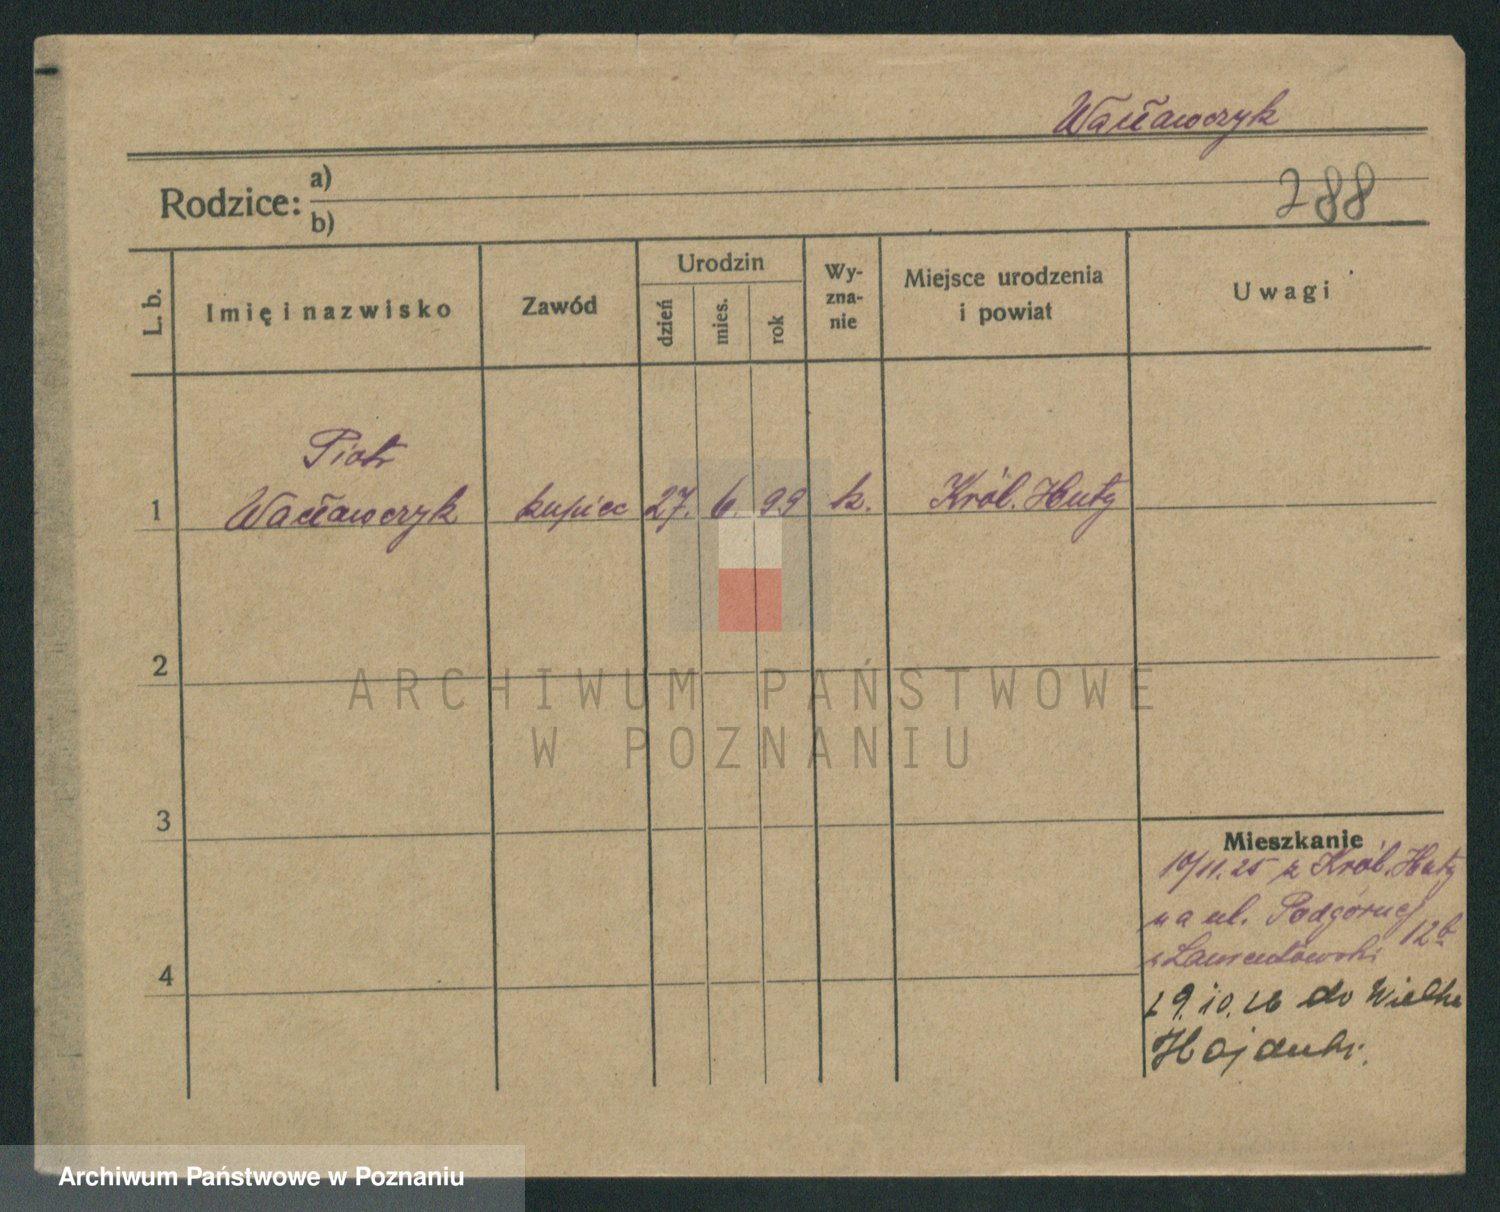 Wacławczyk
Rodzice: a)
b)
288
L. b.
Imię i nazwisko
Zawód
Urodzin
dzień
mies.
rok
Wy-
zna-
nie
Miejsce urodzenia
i powiat
Uwagi
Piotr
1 Wacławczyk kupiec 27. 6. 99 k. Król. Huty
2
ARCHIWUM PAŃSTWOWE
W POZNANIU
3
Mieszkanie
10/11.25 z Król. Huty
na ul. Podgórnej 12b
4
29.10.26 do Wielke
Hajduki.
Archiwum Państwowe w Poznaniu